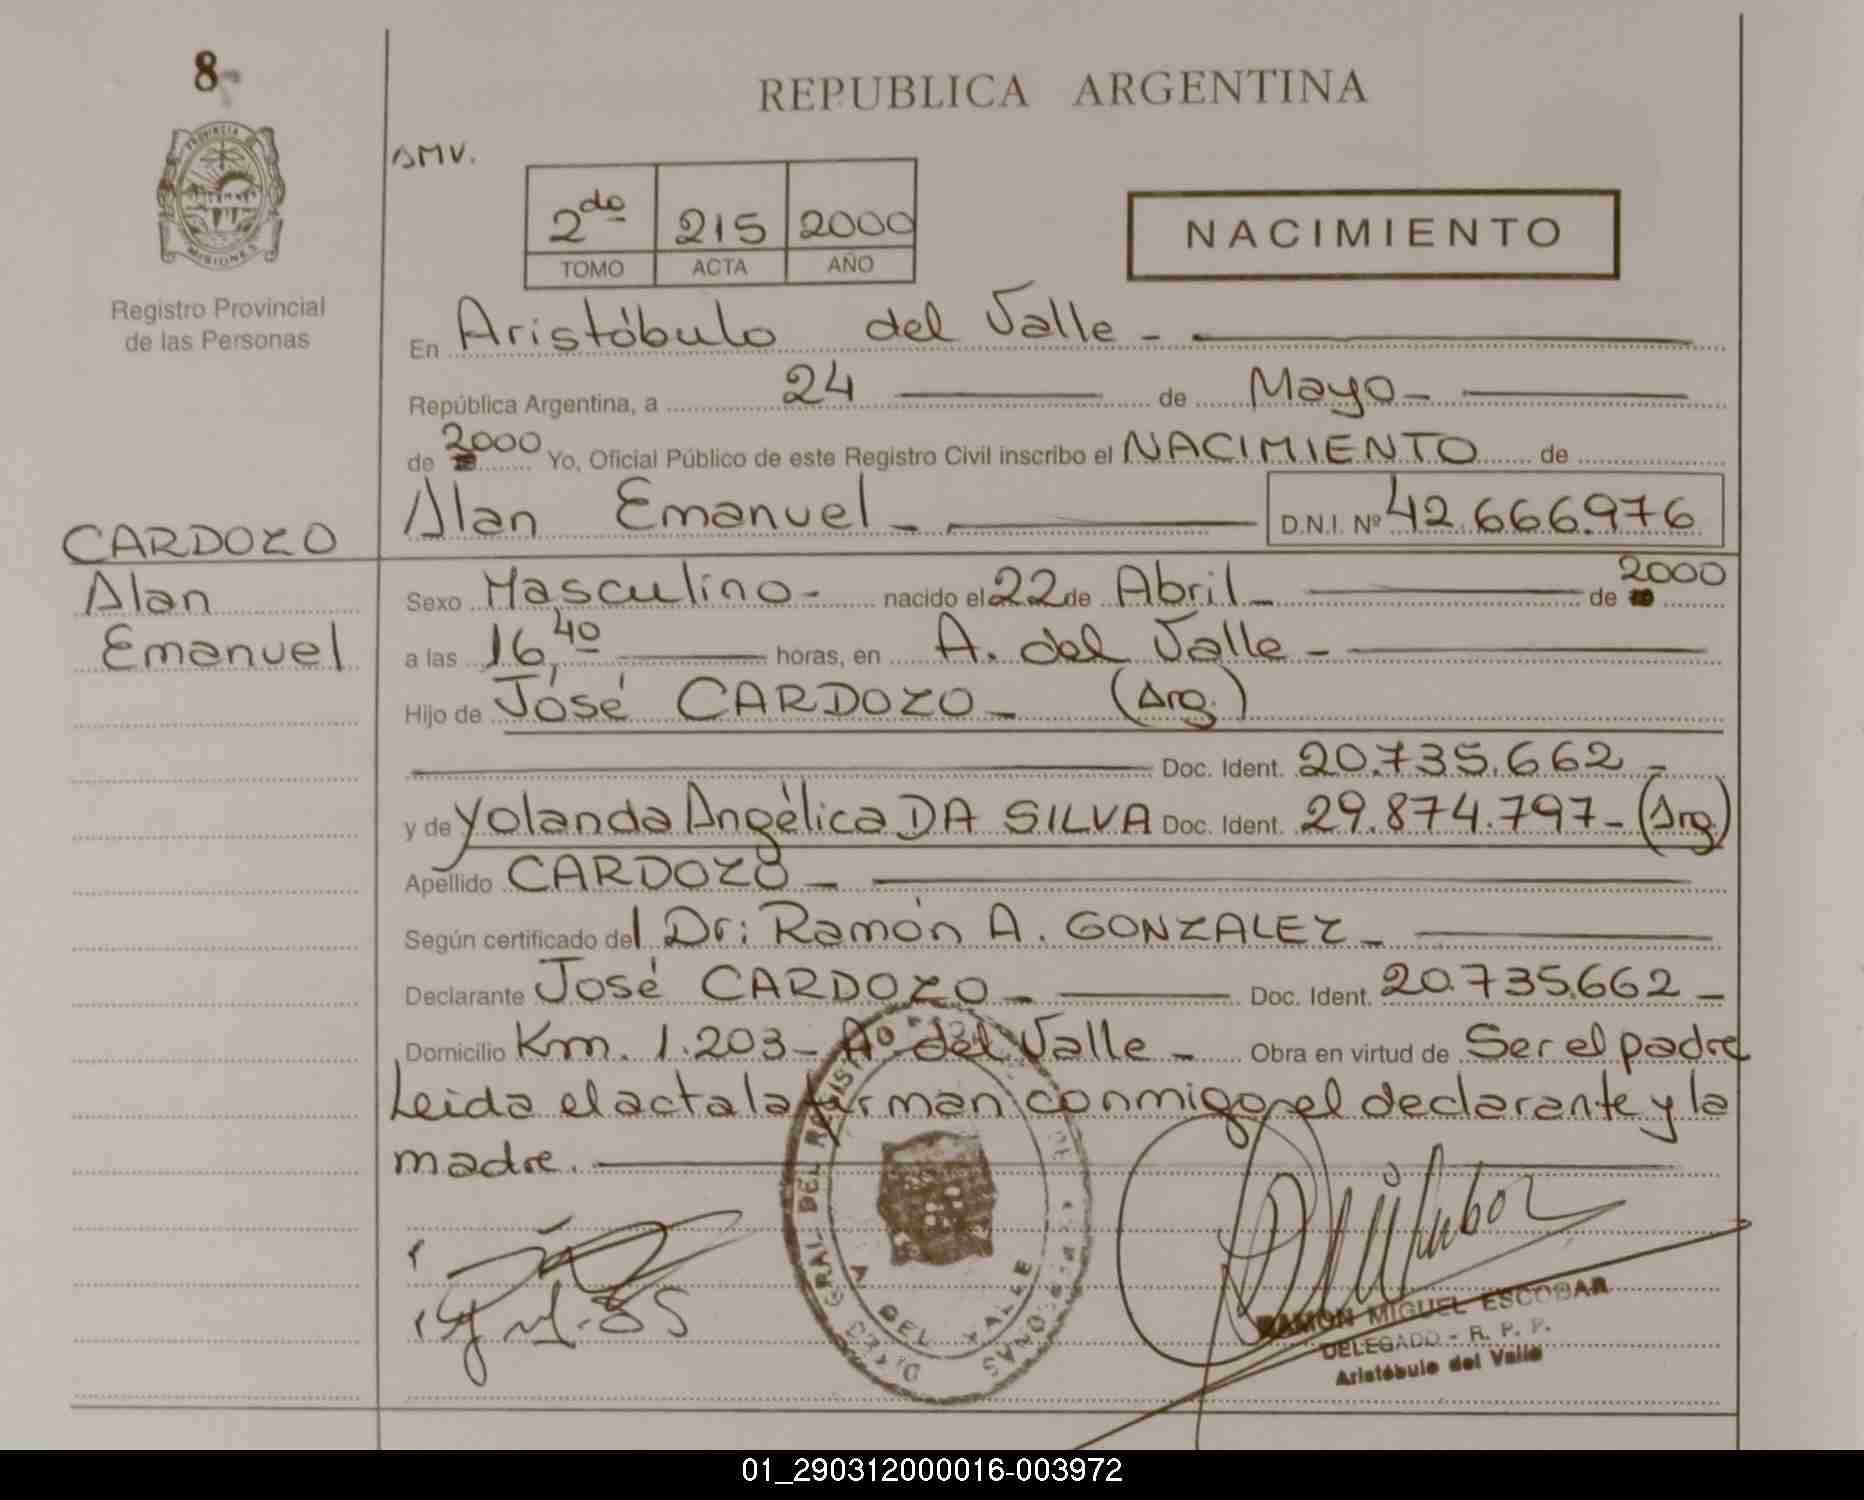 8
PROVINCIA
MISIONES
Registro Provincial
de las Personas
REPUBLICA ARGENTINA
SMV.
2do 215 2000
TOMO ACTA AÑO
NACIMIENTO
En Aristóbulo del Valle -
República Argentina, a 24 de Mayo -
de 2000 Yo, Oficial Público de este Registro Civil inscribo el NACIMIENTO de
Alan Emanuel - D.N.I. Nº 42.666.976
CARDOZO
Alan
Emanuel
Sexo Masculino - nacido el 22 de Abril - de 2000
a las 16,40 horas, en A. del Valle -
Hijo de José CARDOZO - (Arg.)
Doc. Ident. 20.735.662 -
y de Yolanda Angélica DA SILVA Doc. Ident. 29.874.797 - (Arg.)
Apellido CARDOZO -
Según certificado del Dr: Ramón A. GONZALEZ -
Declarante José CARDOZO - Doc. Ident. 20.735.662 -
Domicilio Km. 1.203 - Aº del Valle - Obra en virtud de Ser el padre
Leida el acta la firman conmigo, el declarante y la
madre.
GRAL DEL REGIST DE PERSONAS
A DEL VALLE
RAMON MIGUEL ESCOBAR
DELEGADO - R. P. P.
Aristóbulo del Valle
01_290312000016-003972